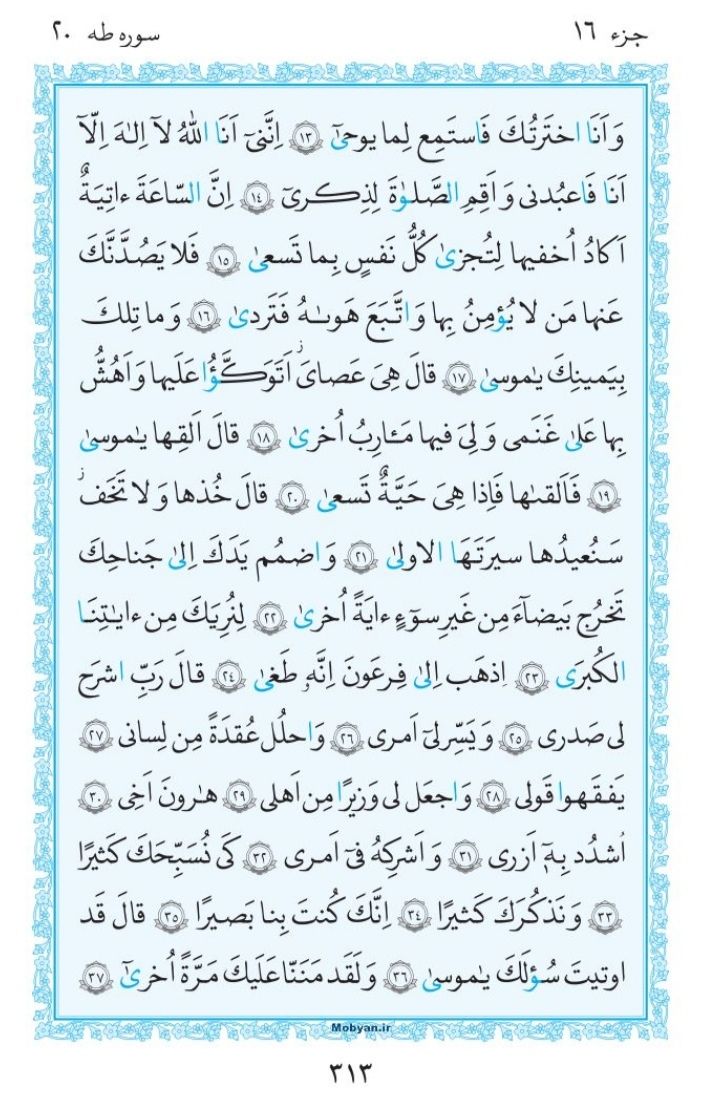 جزء ۱۶
سوره طه ۲۰
وَ اَنَا اختَرتُكَ فَاستَمِع لِما يوحىٰٓ ﴿۱۳﴾ اِنَّنىٓ اَنَا اللّٰهُ لاۤ اِلٰهَ اِلّاۤ
اَنَا فَاعبُدنى وَ اَقِمِ الصَّلوٰةَ لِذِكرىٓ ﴿۱۴﴾ اِنَّ السّاعَةَ ءاتِيَةٌ
اَكادُ اُخفيها لِتُجزىٰ كُلُّ نَفسٍ بِما تَسعىٰ ﴿۱۵﴾ فَلا يَصُدَّنَّكَ
عَنها مَن لا يُؤمِنُ بِها وَ اتَّبَعَ هَوىٰهُ فَتَردىٰ ﴿۱۶﴾ وَ ما تِلكَ
بِيَمينِكَ يٰموسىٰ ﴿۱۷﴾ قالَ هِىَ عَصاىَ اَتَوَكَّؤُا عَلَيها وَ اَهُشُّ
بِها عَلىٰ غَنَمى وَ لِىَ فيها مَـٔارِبُ اُخرىٰ ﴿۱۸﴾ قالَ اَلقِها يٰموسىٰ
﴿۱۹﴾ فَاَلقىٰها فَاِذا هِىَ حَيَّةٌ تَسعىٰ ﴿۲۰﴾ قالَ خُذها وَ لا تَخَف
سَنُعيدُها سيرَتَهَا الاولىٰ ﴿۲۱﴾ وَ اضمُم يَدَكَ اِلىٰ جَناحِكَ
تَخرُج بَيضآءَ مِن غَيرِ سوٓءٍ ءايَةً اُخرىٰ ﴿۲۲﴾ لِنُرِيَكَ مِن ءايٰتِنَا
الكُبرَى ﴿۲۳﴾ اِذهَب اِلىٰ فِرعَونَ اِنَّهٗ طَغىٰ ﴿۲۴﴾ قالَ رَبِّ اشرَح
لى صَدرى ﴿۲۵﴾ وَ يَسِّر لىٓ اَمرى ﴿۲۶﴾ وَ احلُل عُقدَةً مِن لِسانى ﴿۲۷﴾
يَفقَهوا قَولى ﴿۲۸﴾ وَ اجعَل لى وَزيرًا مِن اَهلى ﴿۲۹﴾ هٰرونَ اَخِى ﴿۳۰﴾
اُشدُد بِهٖٓ اَزرى ﴿۳۱﴾ وَ اَشرِكهُ فىٓ اَمرى ﴿۳۲﴾ كَى نُسَبِّحَكَ كَثيرًا
﴿۳۳﴾ وَ نَذكُرَكَ كَثيرًا ﴿۳۴﴾ اِنَّكَ كُنتَ بِنا بَصيرًا ﴿۳۵﴾ قالَ قَد
اوتيتَ سُؤلَكَ يٰموسىٰ ﴿۳۶﴾ وَ لَقَد مَنَنّا عَلَيكَ مَرَّةً اُخرىٰٓ ﴿۳۷﴾
Mobyan.ir
۳۱۳